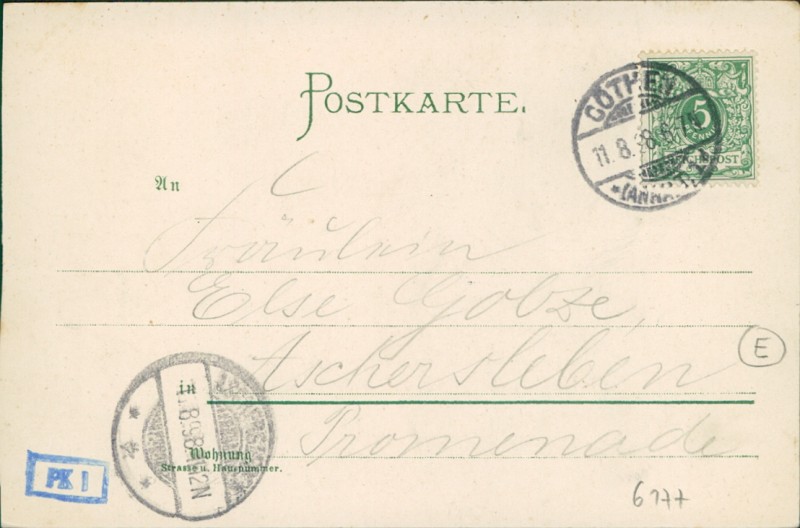 POSTKARTE.
CÖTHEN
11.8.98. 6-7N
(ANHALT)
5
REICHSPOST
An
Fräulein
Else Gobze,
Aschersleben
E
in
8.98.
12N
Promenade
Wohnung
Strasse u. Hausnummer.
PK 1
6177